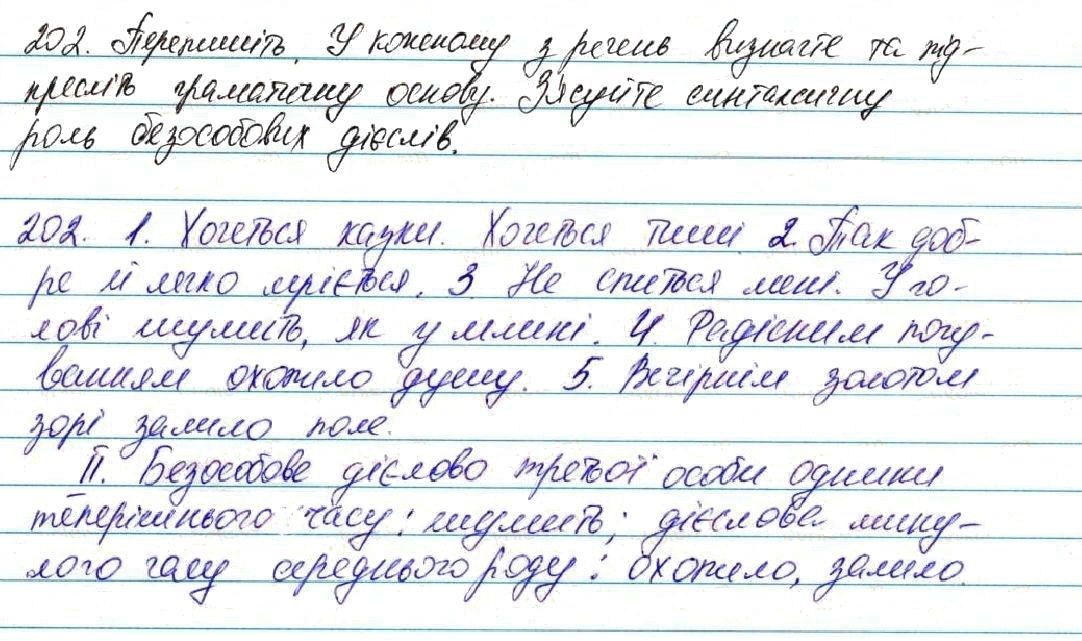 202. Перепишіть. У кожному з речень визначте та під-
кресліть граматичну основу. З'ясуйте синтаксичну
роль безособових дієслів.
202. 1. Хочеться казки. Хочеться тиші 2. Так доб-
ре й легко мріється. 3. Не спиться мені. У го-
лові шумить, як у млині. 4. Радісним почу-
ванням охопило душу. 5. Вечірнім золотом
зорі залило поле.
II. Безособове дієслово третьої особи однини
теперішнього часу: шумить; дієслова мину-
лого часу середнього роду: охопило, залило.